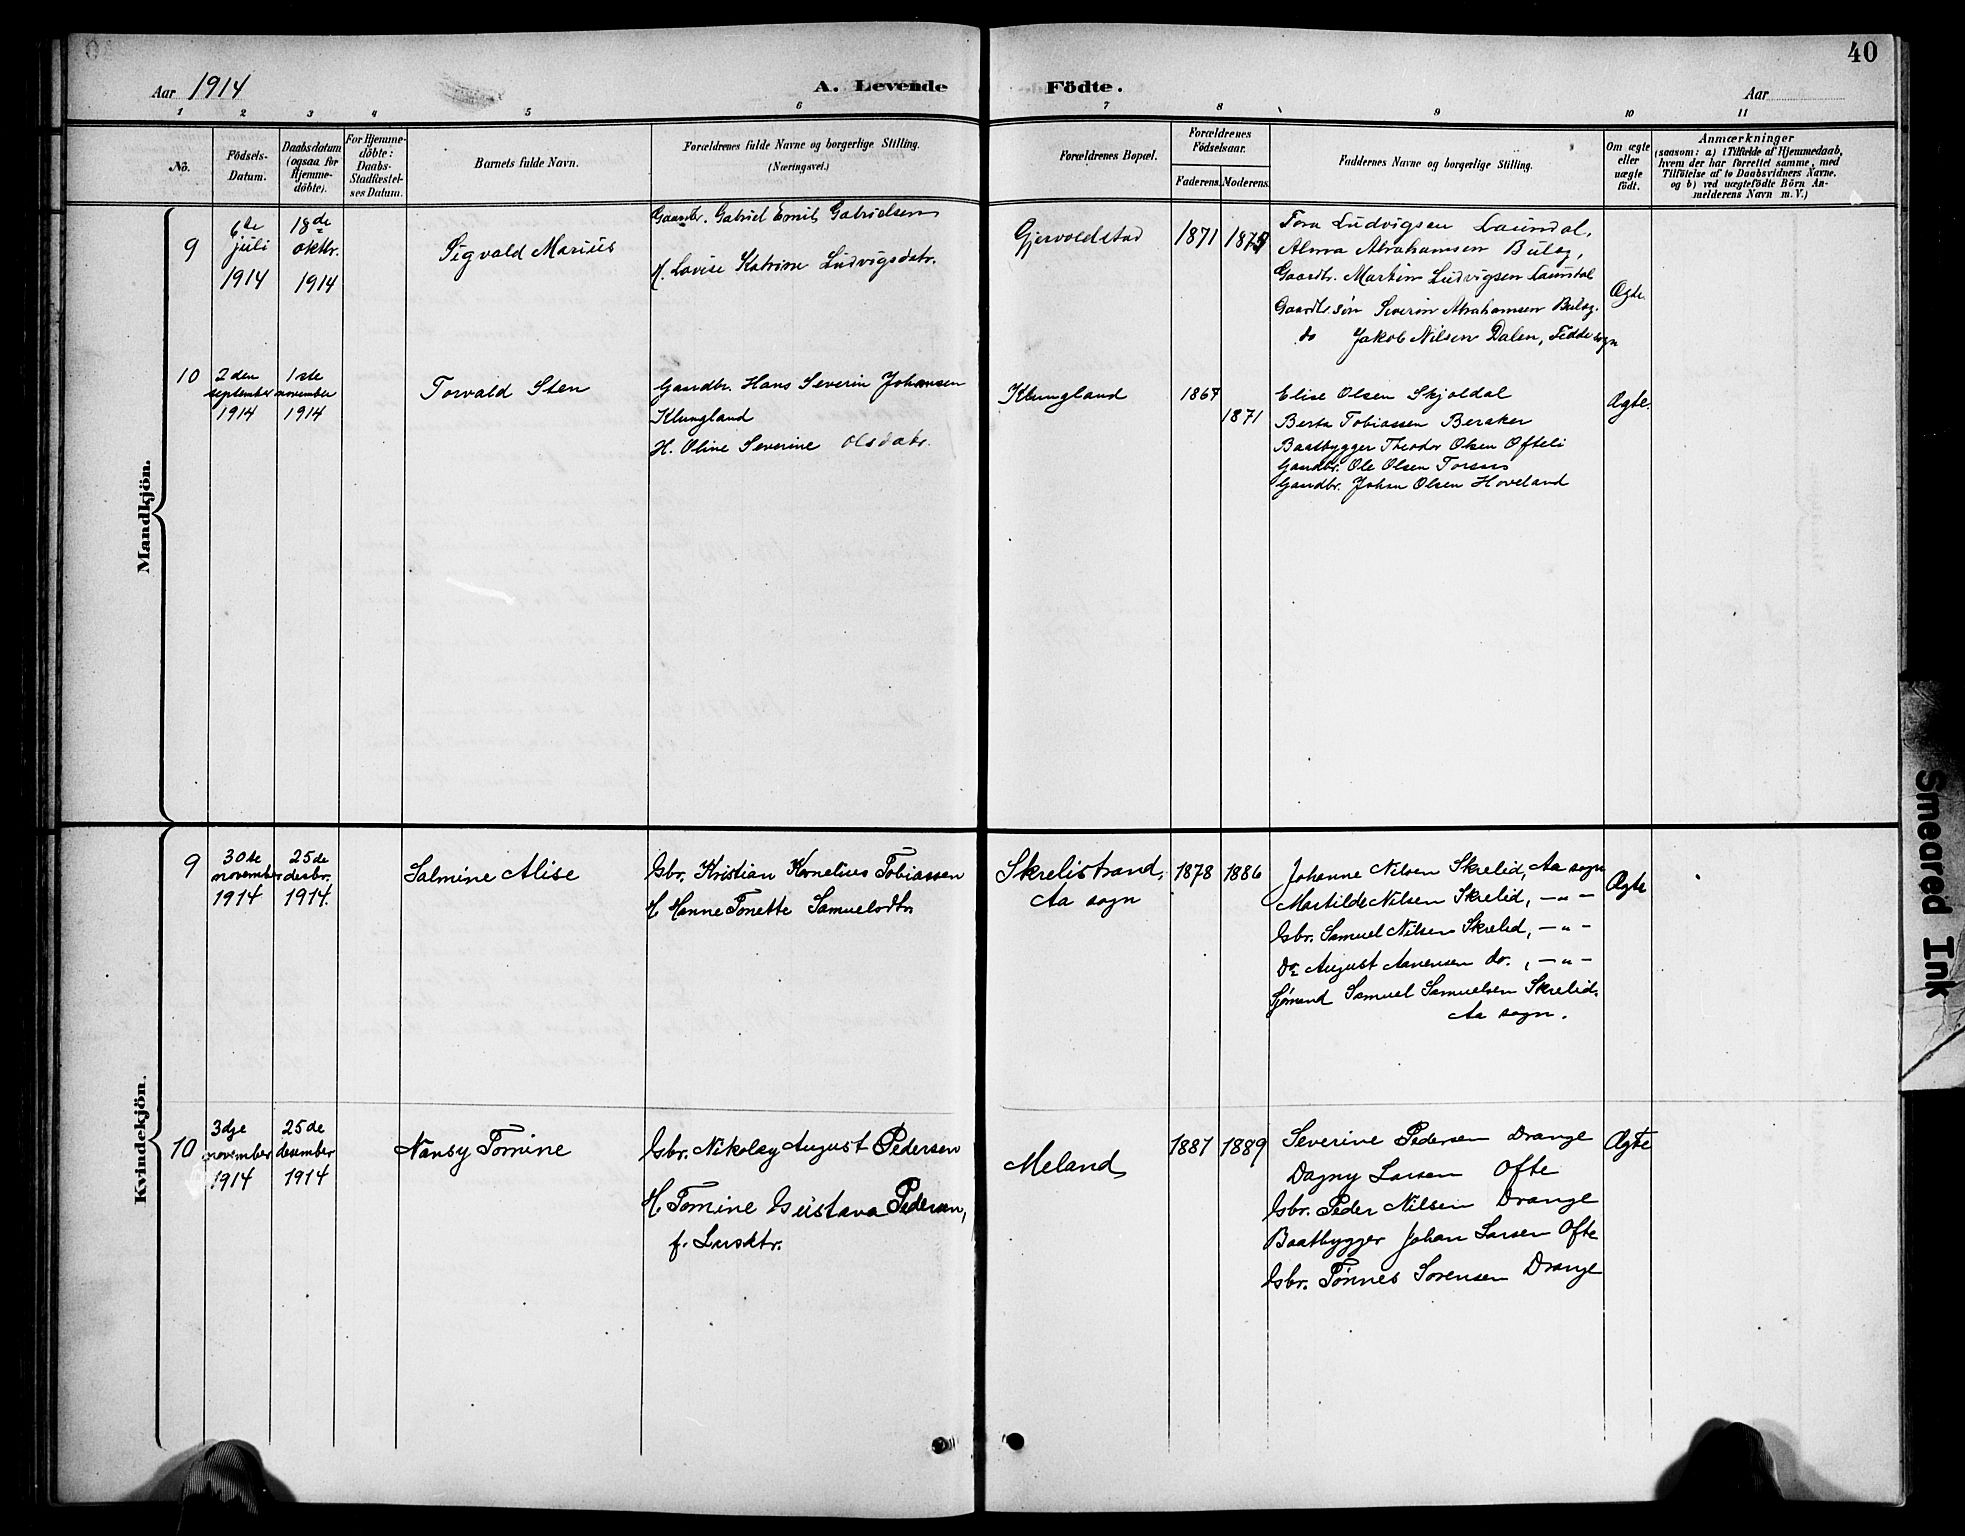 40
Aar 1914
A. Levende Födte.
Aar
1 2 3 4 5 6 7 8 9 10 11
No.
Födsels-
Datum.
Daabsdatum
(ogsaa for
Hjemme-
döbte).
For Hjemme-
döbte:
Daabs-
Stadfæstel-
ses Datum.
Barnets fulde Navn.
Forældrenes fulde Navne og borgerlige Stilling.
(Næringsvei.)
Forældrenes Bopæl.
Forældrenes
Födselsaar.
Faderens. Moderens.
Faddernes Navne og borgerlige Stilling.
Om ægte
eller
uægte
födt.
Anmærkninger
(saasom: a) i Tilfælde af Hjemmedaab,
hvem der har forrettet samme, med
Tilföielse af to Daabsvidners Navne,
og b) ved uægtefödte Börn An-
melderens Navn m. V.)
Mandkjön.
9
6te
juli
1914
18de
oktbr.
1914
Sigvald Marius
Gaardbr. Gabriel Emil Gabrielsen
H. Lovise Katrine Ludvigsdatr.
Gjervoldstad
1871
Tora Ludvigsen Laundal,
Alma Abrahamsen Buløg,
Gaardbr. Martin Ludvigsen Laundal
Gaardbr.søn Severin Abrahamsen Buløg.
do Jakob Nilsen Dalen, Feddesogn
Ægte.
10
2den
september
1914
1ste
november
1914
Torvald Sten
Gaardbr. Hans Severin Johansen
Klungland
H. Oline Severine Olsdatr.
Klungland
1867
1871
Elise Olsen Skjoldal
Berta Tobiassen Beraker
Baatbygger Theodor Olsen Ofteli
Gaardbr. Ole Olsen
Gaardbr. Johan Olsen Hoveland
Ægte.
Kvindekjön.
9
30te
november
1914
25de
desbr.
1914.
Salmine Alise
Gbr. Kristian Kornelius Tobiassen
H Hanne Tonette Samuelsdtr
Skrelistrand,
Aa sogn
1878
1886
Johanne Nilsen Skrelid, Aa sogn
Martilde Nilsen Skrelid, — " —
Gbr. Samuel Nilsen Skrelid, — " —
Do August Aanensen do. , — " —
Sjømand Samuel Samuelsen Skrelid,
Aa sogn.
Ægte
10
3dje
november
1914
25de
desember
1914
Nansy Tomine
Gbr. Nikolay August Pedersen
H Tomine Gustava Pedersen,
f. Larsdtr.
Meland
1887
1889
Severine Pedersen Drange
Dagny Larsen Ofte
Gbr. Peder Nilsen Drange
Baatbygger Johan Larsen Ofte
Gbr. Tønnes Sørensen Drange
Ægte
Smeared Ink